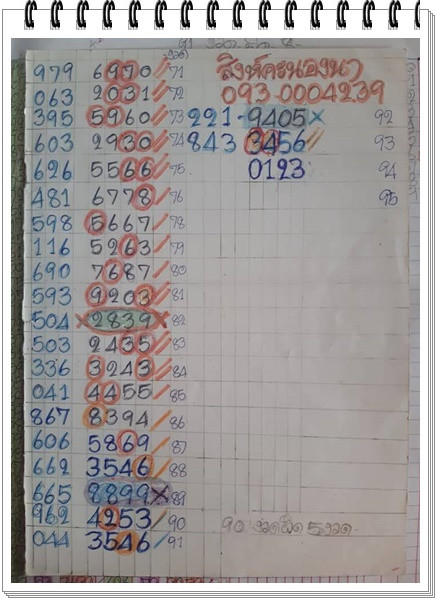 979 6970 71
สิงห์คะนองนา
063 2031 72
093-0004239
395 5960 73
221-9405× 92
603 2930 74
843 3456 93
626 5566 75
0123 94
481 6778 76
95
598 5667 78
116 5263 79
690 7687 80
593 9203 81
504 ×2839× 82
503 2435 83
336 3243 84
041 4455 85
867 8394 86
606 5869 87
662 3546 88
665 8899× 89
962 4253 90
90 งวดผิด 5งวด
044 3546 91